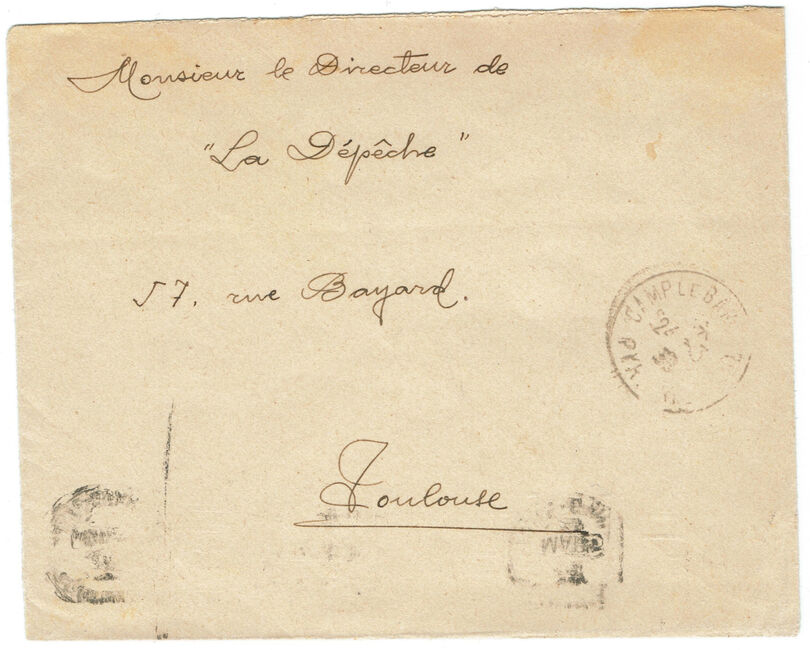 Monsieur le Directeur de
"La Dépêche"
57, rue Bayard.
Toulouse